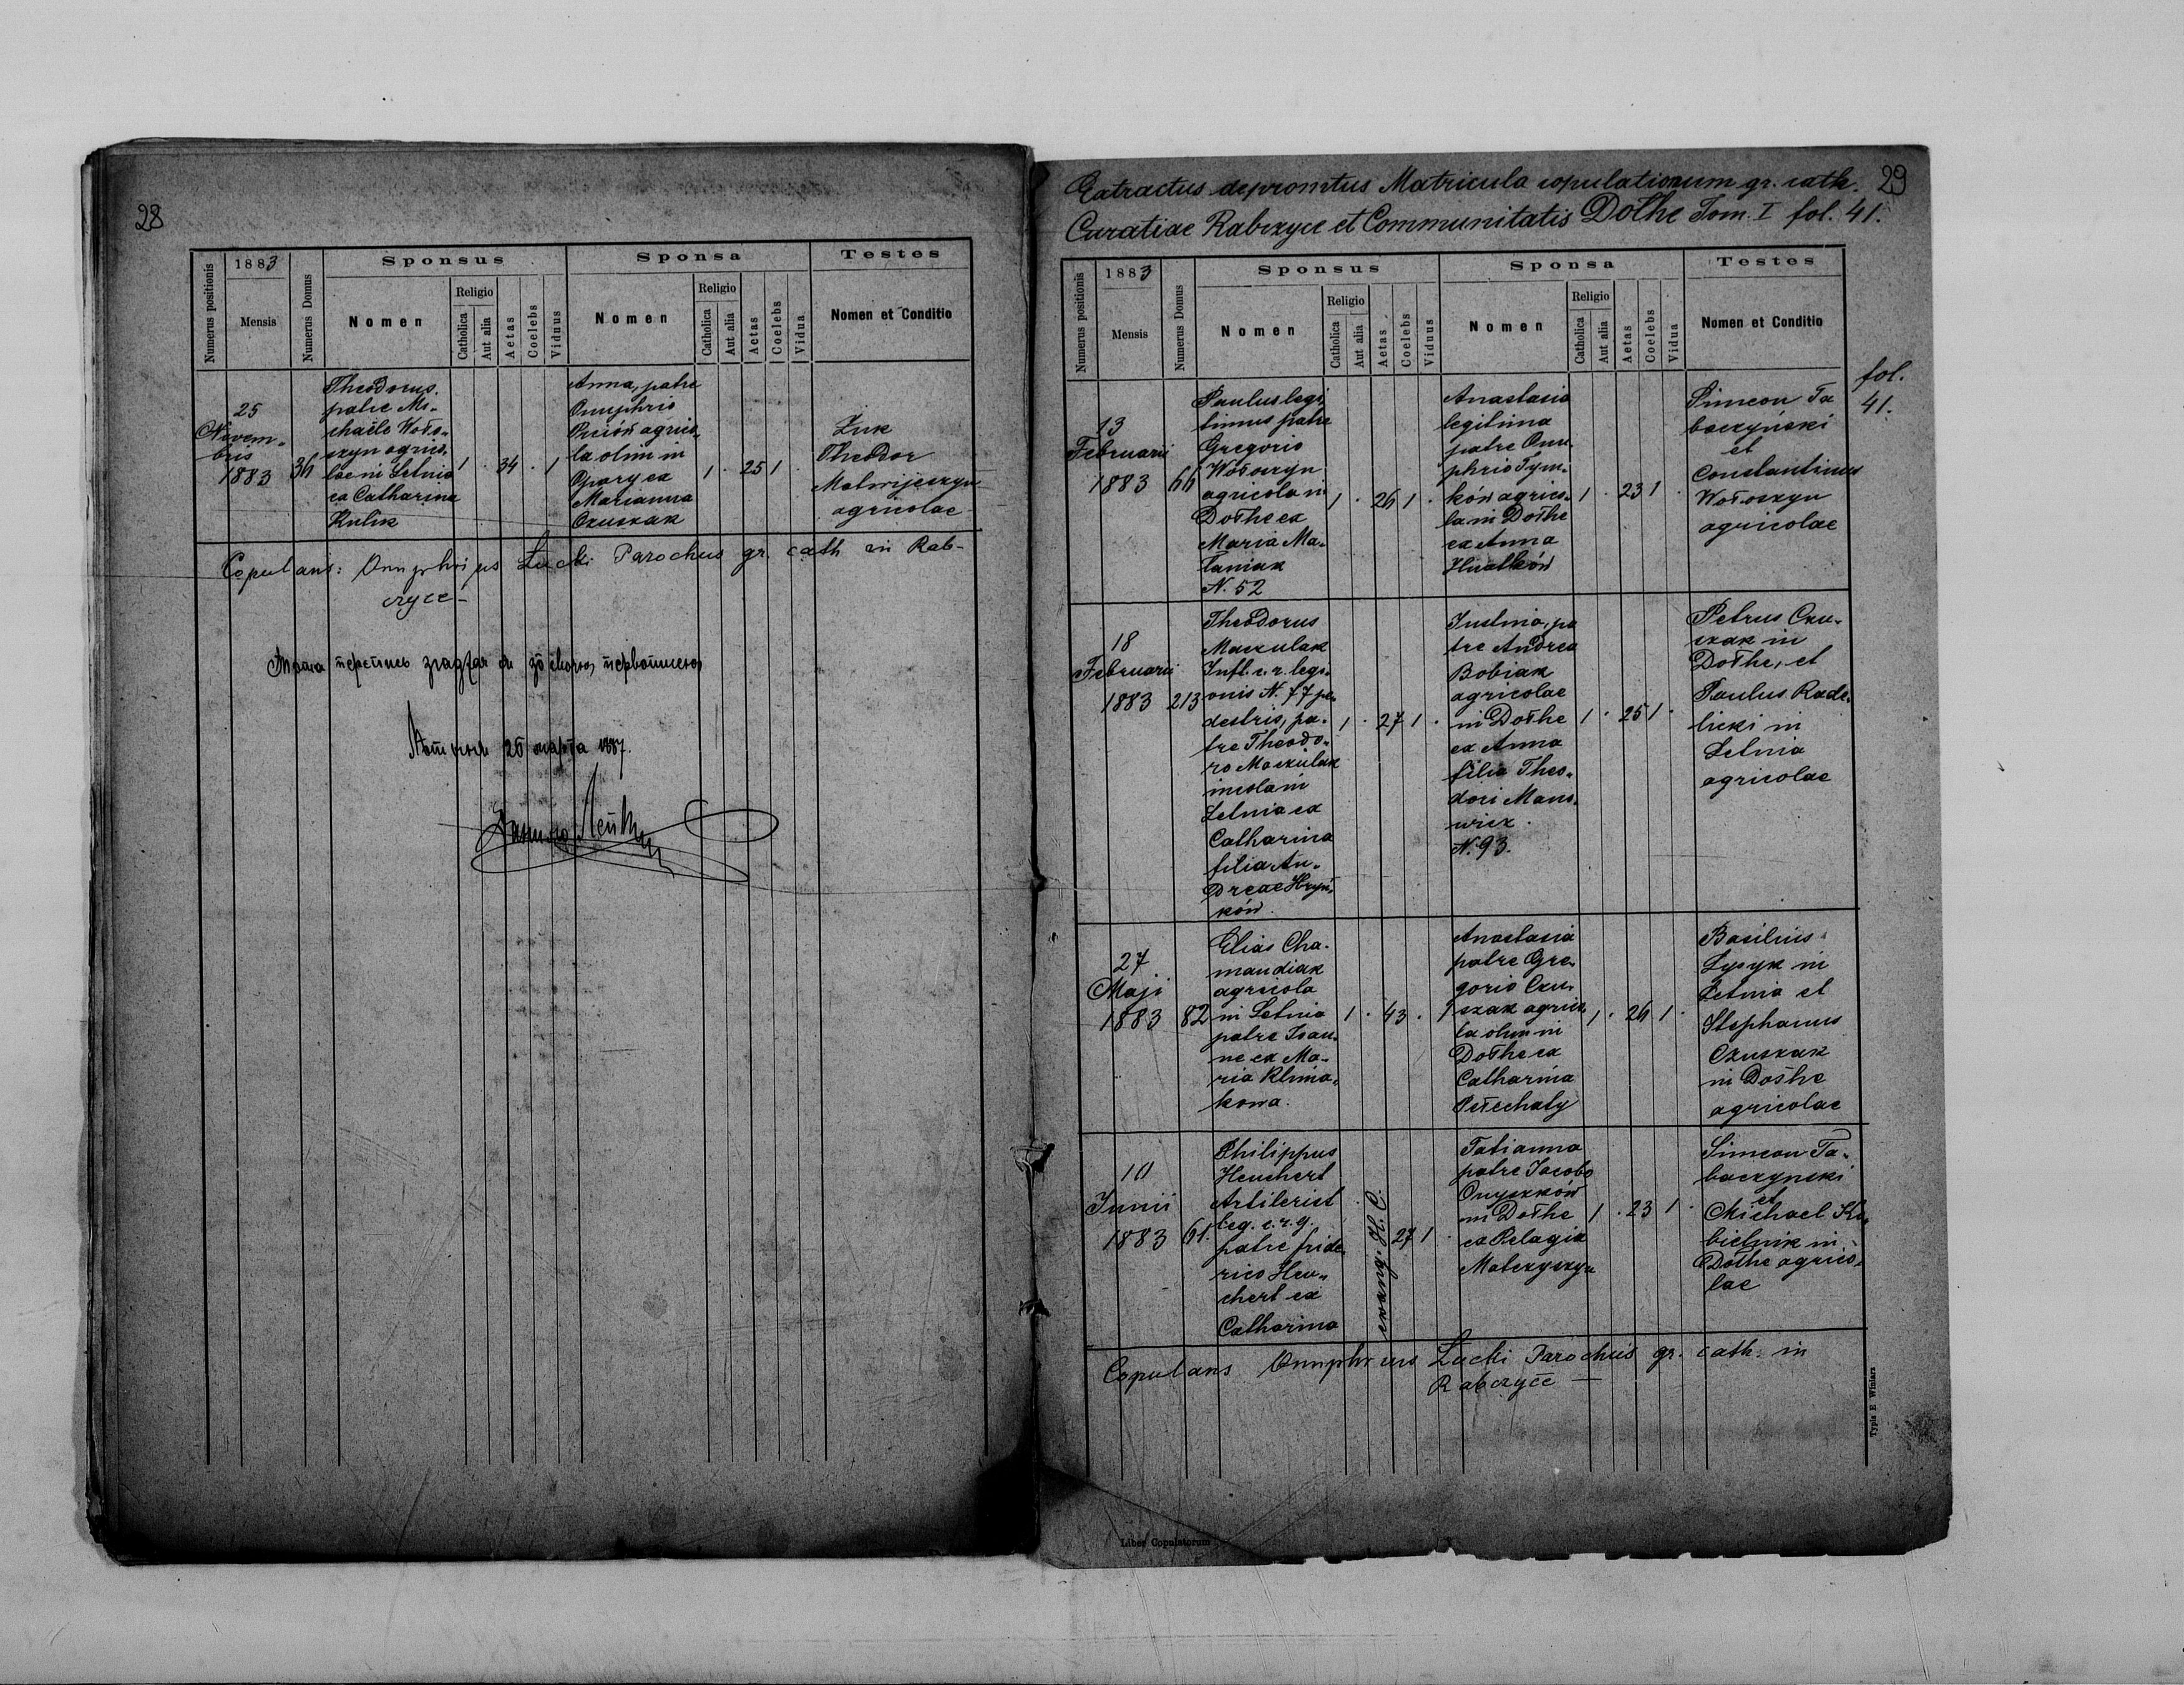 28
Numerus positionis
1883
Mensis
Numerus Domus
Sponsus
Nomen
Religio
Catholica
Aut alia
Aetas
Coelebs
Viduus
Sponsa
Nomen
Religio
Catholica
Aut alia
Aetas
Coelebs
Vidua
Testes
Nomen et Conditio
25
Novem-
bris
1883
Theodorus
patre Mi-
chaële Woło-
szyn agrico-
lae in Letnia
ex Catharina
Kulik
1 . 34 . 1
Anna, patre
Onuphrio
agrico-
la olim in
Opary ex
Marianna
Czuszak
1 . 25 1 .
Żuk
Theodor
Matwijeszyn
agricolae
Copulans: Onuphrius Łucki Parochus gr. cath in Rab-
czyce -
29
Extractus depromtus Matricula copulationum gr. cath.
Curatiae Rabczyce et Communitatis Dołhe Tom. I fol. 41.
Numerus positionis
1883
Mensis
Numerus Domus
Sponsus
Nomen
Religio
Catholica
Aut alia
Aetas
Coelebs
Viduus
Sponsa
Nomen
Religio
Catholica
Aut alia
Aetas
Coelebs
Vidua
Testes
Nomen et Conditio
fol.
41.
13
Februarii
1883
66
Paulus legi-
timus patre
Gregorio
Wołoszyn
agricola in
Dołhe ex
Maria Ma-
łaniak
N. 52
1 . 26 1 .
Anastasia
legitima
patre Onu-
phrio Tym-
ków agrico-
la in Dołhe
ex Anna
Hnatków
1 . 23 1 .
Simeon Ta
baczyński
et
Constantinus
Wołoszyn
agricolae
18
Februarii
1883
213
Theodorus
Maczulak
Inft. c. r. legi-
onis N. 77 pe-
destris, pa-
tre Theodo-
ro Maczulak
incola in
Letnia ex
Catharina
filia An-
dreae Hryń-
ków.
1 . 27 1 .
Justina, pa
tre Andrea
Bobiak
agricolae
in Dołhe
ex Anna
filia Theo-
dori Mano-
wicz.
N. 93.
1 . 25 1 .
Petrus Czu-
szak in
Dołhe, et
Paulus Rade-
licki in
Letnia
agricolae
27
Maji
1883
82
Elias Cha-
mandiak
agricola
in Letnia
patre Joan-
ne ex Ma-
ria Klima-
kowa.
1 . 43 . 1
Anastasia
patre Gre-
gorio Czu-
szak agrico-
la olim in
Dołhe ex
Catharina
Pełechaty
1 . 26 1 .
Basilius
Łysyk in
Letnia et
Stephanus
Czuszak
in Dołhe
agricolae
10
Junii
1883
61.
Philippus
Heuchert
Artilerist
leg. c. r. 9.
patre Fride-
rico Heu-
chert ex
Catharina
evang. H. C.
27 1 .
Tatianna
patre Jacobo
Onyszków
in Dołhe
ex Pelagia
Matczyszyn
1 . 23 1 .
Simeon Ta-
baczynski
et
Michael Ku-
bielnik in
Dołhe agrico-
lae
Copulans Onuphrius Łucki Parochus gr. cath. in
Rabczyce —
Typis E Winiarz
Liber Copulatorum